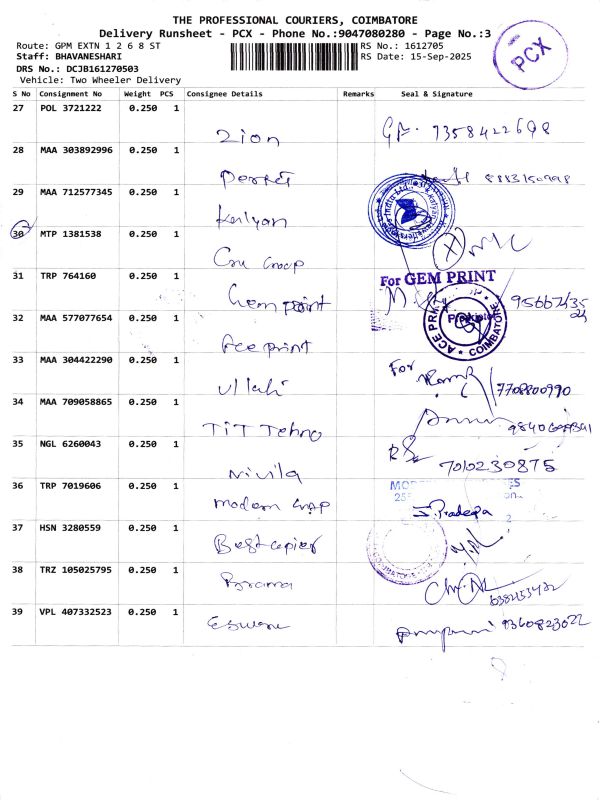 THE PROFESSIONAL COURIERS, COIMBATORE
Delivery Runsheet - PCX - Phone No.:9047080280 - Page No.:3
Route: GPM EXTN 1 2 6 8 ST
RS No.: 1612705
Staff: BHAVANESHARI
RS Date: 15-Sep-2025
DRS No.: DCJB161270503
Vehicle: Two Wheeler Delivery
PCX
S No Consignment No Weight PCS Consignee Details Remarks Seal & Signature
27 POL 3721222 0.250 1
Zion 7358422698
28 MAA 303892996 0.250 1
Perfect 8883150998
29 MAA 712577345 0.250 1
Kalyan
30 MTP 1381538 0.250 1
Cru Group
31 TRP 764160 0.250 1
For GEM PRINT
Gem print
32 MAA 577077654 0.250 1
ACE PRINT COIMBATORE
Ace print
33 MAA 304422290 0.250 1
For
Ullahi 7708800990
34 MAA 709058865 0.250 1
TiT Tehno
35 NGL 6260043 0.250 1
7010230875
Nivila
36 TRP 7019606 0.250 1
modern wrap S. Pradeepa
37 HSN 3280559 0.250 1
Best copier
38 TRZ 105025795 0.250 1
Brama
39 VPL 407332523 0.250 1
Eswari 9360823022